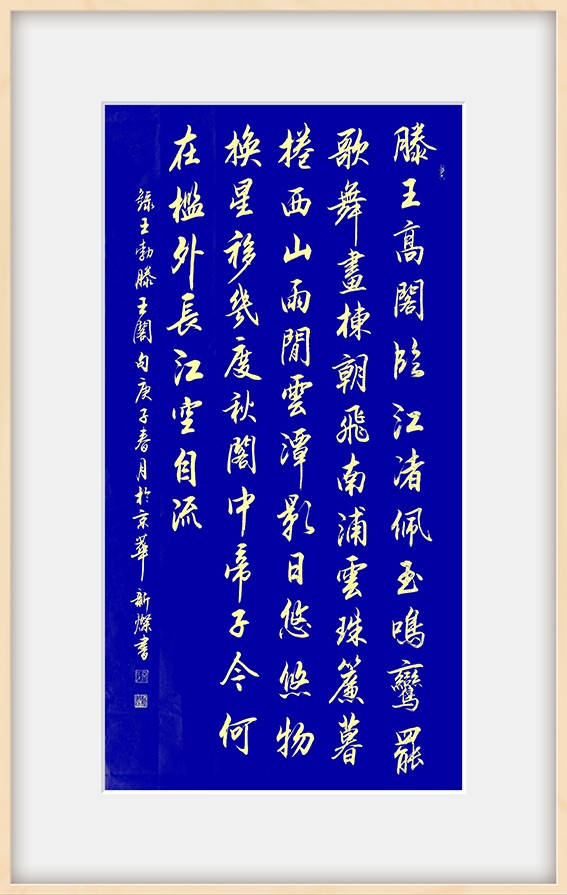 滕王高閣臨江渚佩玉鳴鸞罷
歌舞畫棟朝飛南浦雲珠簾暮
捲西山雨閒雲潭影日悠悠物
換星移幾度秋閣中帝子今何
在檻外長江空自流
錄王勃滕王閣句庚子春月於京華新燦書